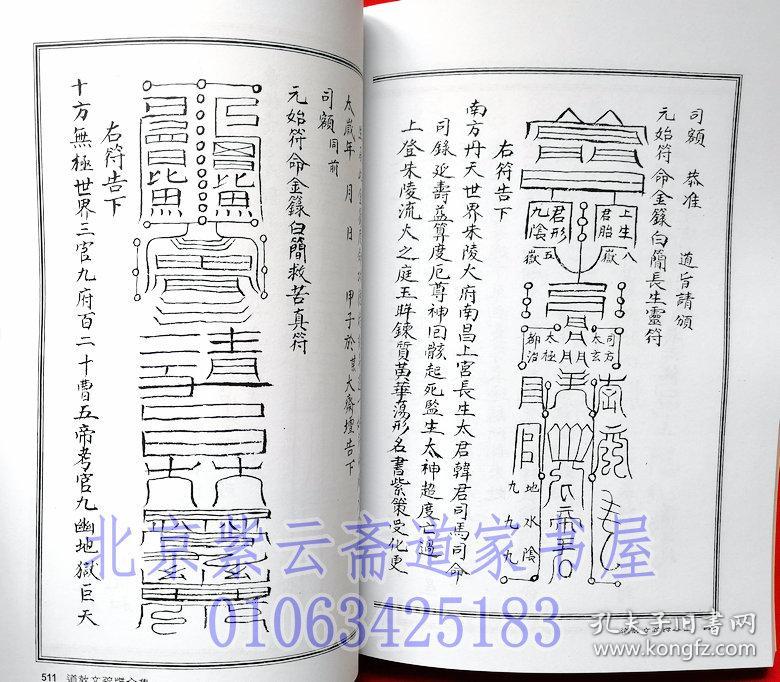 司額 恭准 道旨請頒
元始符命金籙白簡長生靈符
上生
君胎
八
嶽
君形
九陰
五
嶽
司方
太玄
太極
都治
地水陰
九九九
右符告下
南方丹天世界朱陵大府南昌上宮長生太君韓君司馬司命
司錄延壽益算度厄尊神回骸起死監生太神超度亡過
上登朱陵流火之庭玉眸鍊質黃華蕩形名書紫策受化更
太歲年 月 日 甲子於 大齋壇告下
司額同前
元始符命金籙白簡救苦真符
右符告下
十方無極世界三官九府百二十曹五帝考官九幽地獄巨天
511
北京紫云斋道家书屋
01063425183
孔夫子旧书网
www.kongfz.com